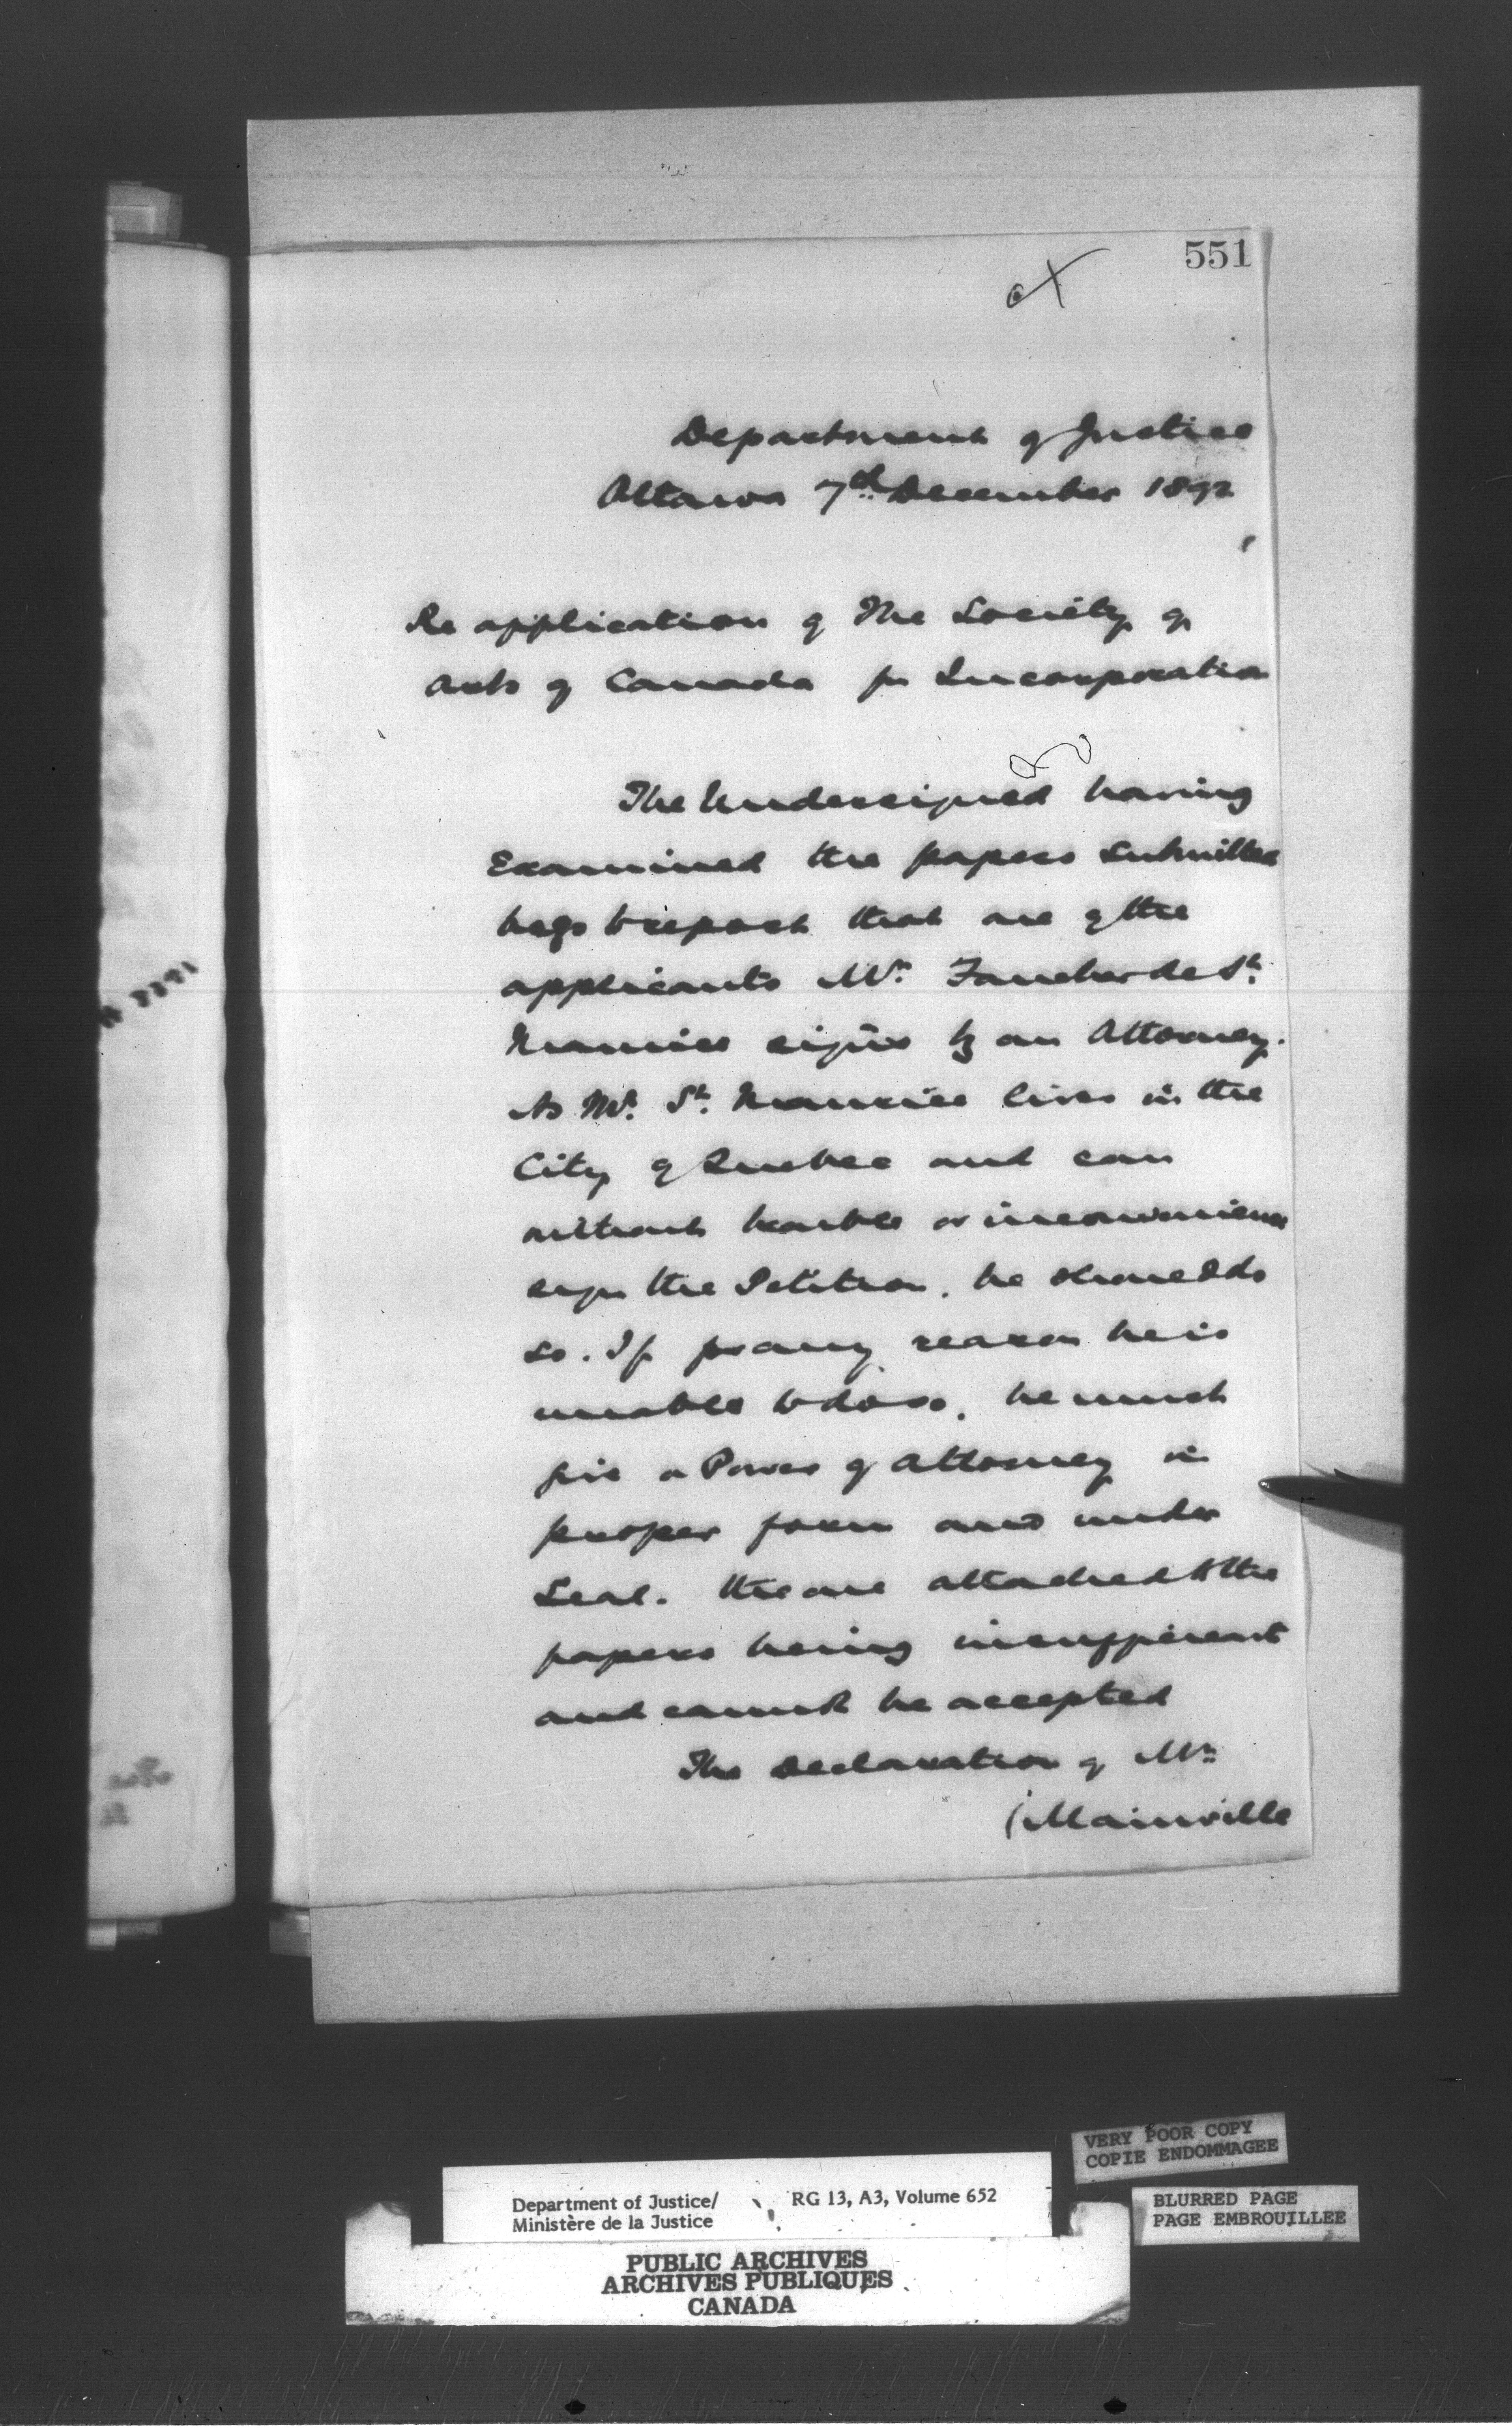 551
Department of Justice
Ottawa 7th December 1892
Re application of The Society of
Arts of Canada for Incorporation
The Undersigned having
Examined the papers submitted
begs to report that one of the
applicants Mr. Faucher de St.
Maurice signs by an Attorney.
As Mr. St. Maurice lives in the
City of Quebec and can
without trouble or inconvenience
sign the Petition, he should do
so. If for any reason he is
unable to do so, he must
give a Power of Attorney in
proper form and under
Seal. the one attached to the
papers being insufficient
and cannot be accepted
The Declaration of Mr.
(Mainville
VERY POOR COPY
COPIE ENDOMMAGEE
BLURRED PAGE
PAGE EMBROUILLEE
Department of Justice/ RG 13, A3, Volume 652
Ministère de la Justice
PUBLIC ARCHIVES
ARCHIVES PUBLIQUES
CANADA